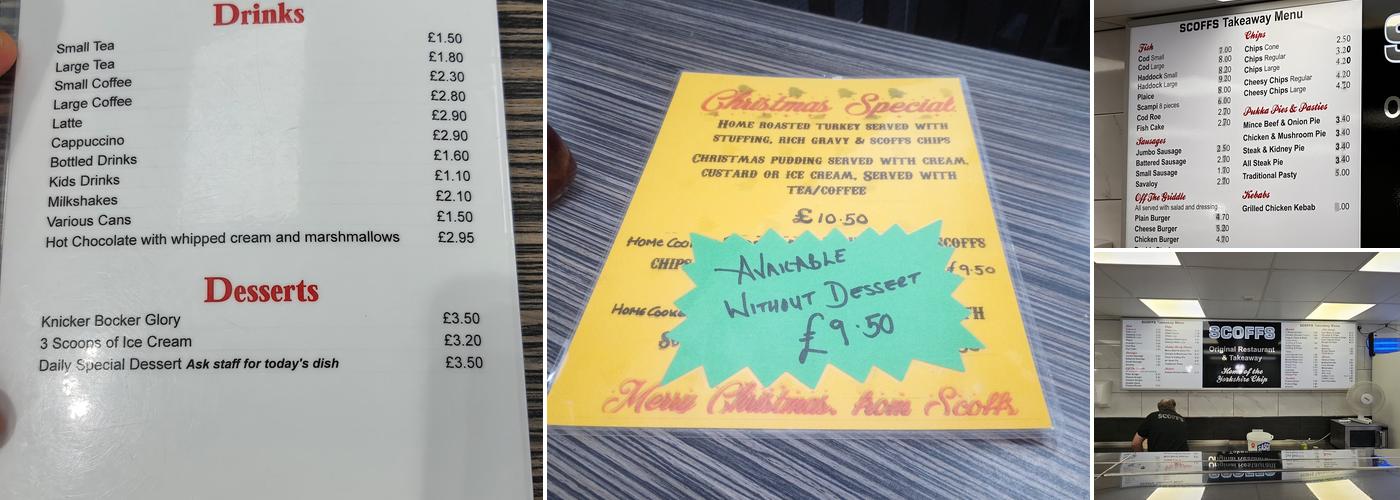 Drinks
Small Tea £1.50
Large Tea £1.80
Small Coffee £2.30
Large Coffee £2.80
Latte £2.90
Cappuccino £2.90
Bottled Drinks £1.60
Kids Drinks £1.10
Milkshakes £2.10
Various Cans £1.50
Hot Chocolate with whipped cream and marshmallows £2.95
Desserts
Knicker Bocker Glory £3.50
3 Scoops of Ice Cream £3.20
Daily Special Dessert Ask staff for today's dish £3.50
Christmas Special
HOME ROASTED TURKEY SERVED WITH
STUFFING, RICH GRAVY & SCOFFS CHIPS
CHRISTMAS PUDDING SERVED WITH CREAM,
CUSTARD OR ICE CREAM, SERVED WITH
TEA/COFFEE
£10.50
HOME SCOFFS
CHIPS £9.50
HOME
AVAILABLE
WITHOUT DESSERT
£9.50
Merry Christmas from Scoffs
SCOFFS Takeaway Menu
Fish
Cod Small 7.00
Cod Large 8.00
Haddock Small 8.20
Haddock Large 9.20
Plaice 8.00
Scampi 8 pieces 6.00
Cod Roe
Fish Cake
Sausages
Jumbo Sausage
Battered Sausage
Small Sausage
Savaloy
Off The Griddle
All served with salad and dressing
Plain Burger 4.70
Cheese Burger 5.20
Chicken Burger
Chips
Chips Cone 2.50
Chips Regular 3.20
Chips Large 4.20
Cheesy Chips Regular 4.20
Cheesy Chips Large
Pukka Pies & Pasties
Mince Beef & Onion Pie 3.40
Chicken & Mushroom Pie 3.40
Steak & Kidney Pie 3.40
All Steak Pie 3.40
Traditional Pasty 5.00
Kebabs
Grilled Chicken Kebab
Takeaway Menu
SCOFFS
Original Restaurant
& Takeaway
Home of the
Yorkshire Chip
SCOFFS